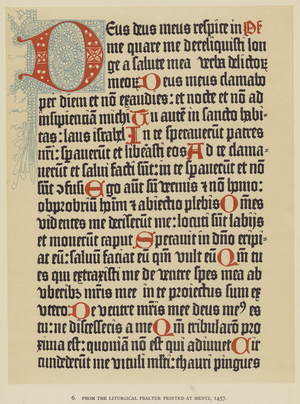 Deus deus meus respice in me
me quare me dereliquisti lon
ge a salute mea verba delictoꝝ
meoꝝ Deus meus clamabo
per diem et nō exaudies: et nocte et nō ad
insipienciā michi Tu autē in sancto habi
tas: laus israhel In te speraverūt patres
nr̄i: speraverūt et liberasti eos Ad te clama
verūt et salvi facti sunt: in te speraverūt et nō
sunt ꝯfusi Ego aūt sū vermis ⁊ nō homo:
obprobriū hoīm ⁊ abiectio plebis Om̄es
videntes me deriserūt me: locuti sūt labijs
et moverūt caput Speravit in dn̄o eripi-
at eū: salvū faciat eū qm̄ vult eū Qm̄ tu
es qui extraxisti me de ventre spes mea ab
vberibꝫ mr̄is mee in te proiectus sum ex
vtero De ventre mr̄is mee deus meꝰ es
tu: ne discesseris a me Qm̄ tribulacō pro
xima est: quoniā non est qui adiuvet Cir
cūdederūt me vituli multi: thauri pingues
6. FROM THE LITURGICAL PSALTER PRINTED AT MENTZ, 1457.